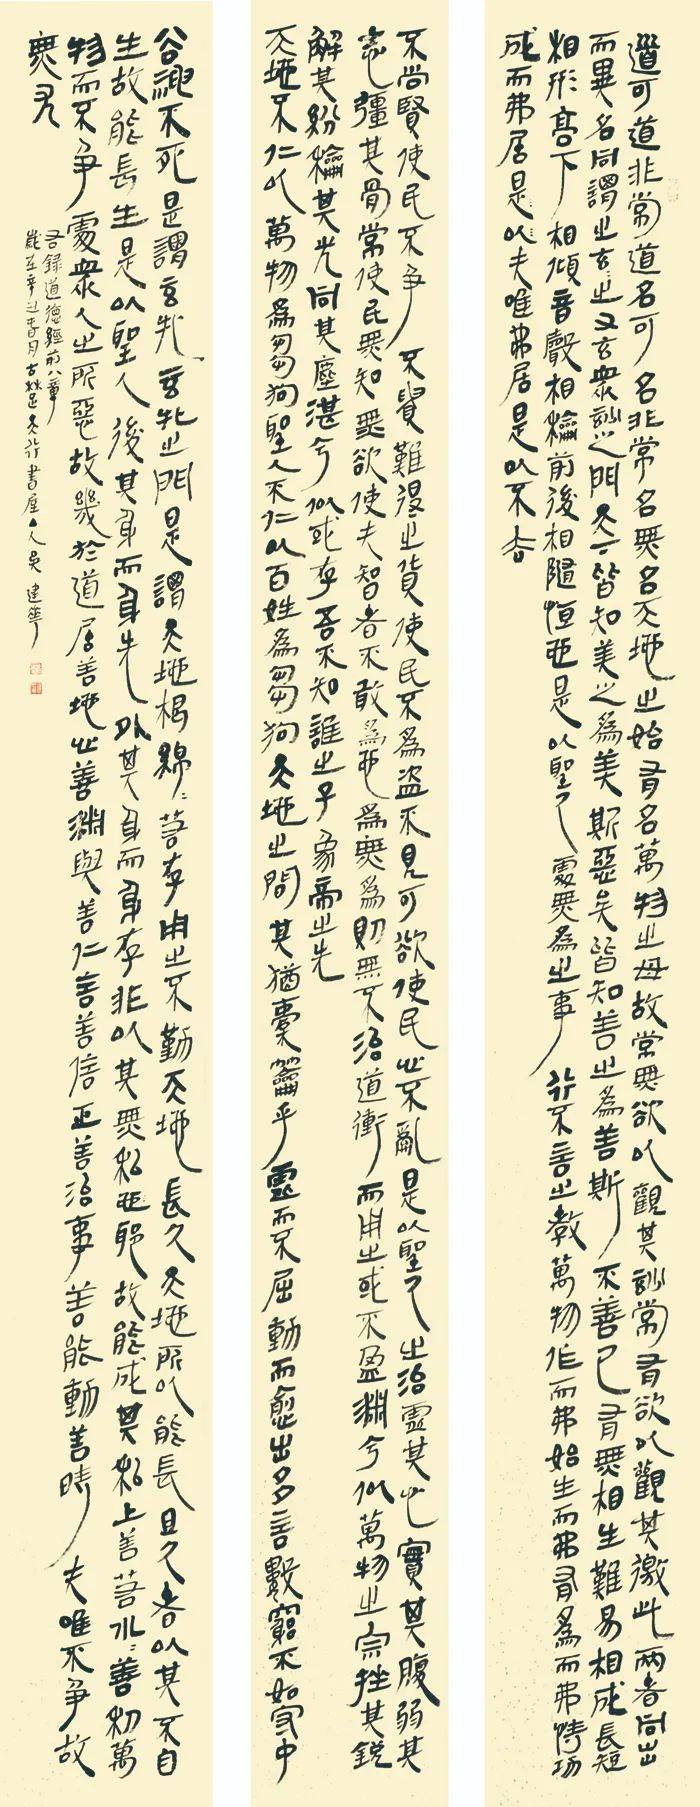 道可道非常道名可名非常名無名天地之始有名萬物之母故常無欲以觀其妙常有欲以觀其徼此兩者同出
而異名同謂之玄之又玄衆妙之門天下皆知美之為美斯惡矣皆知善之為善斯不善已有無相生難易相成長短
相形高下相傾音聲相龢前後相隨恒也是以聖人處無為之事行不言之教萬物作而弗始生而弗有為而弗恃功
成而弗居是以夫唯弗居是以不去
不尚賢使民不爭不貴難得之貨使民不為盜不見可欲使民心不亂是以聖人之治虛其心實其腹弱其
志彊其骨常使民無知無欲使夫智者不敢為也為無為則無不治道衝而用之或不盈淵兮似萬物之宗挫其銳
解其紛龢其光同其塵湛兮似或存吾不知誰之子象帝之先
天地不仁以萬物為芻狗聖人不仁以百姓為芻狗天地之間其猶橐籥乎虛而不屈動而愈出多言數窮不如守中
谷神不死是謂玄牝玄牝之門是謂天地根綿綿若存用之不勤天地長久天地所以能長且久者以其不自
生故能長生是以聖人後其身而身先外其身而身存非以其無私也耶故能成其私上善若水水善利萬
物而不爭處衆人之所惡故幾於道居善地心善淵與善仁言善信正善治事善能動善時夫唯不爭故
無尤
右錄道德經前八章
歲在辛丑春月古楚天行書屋主人吳建華